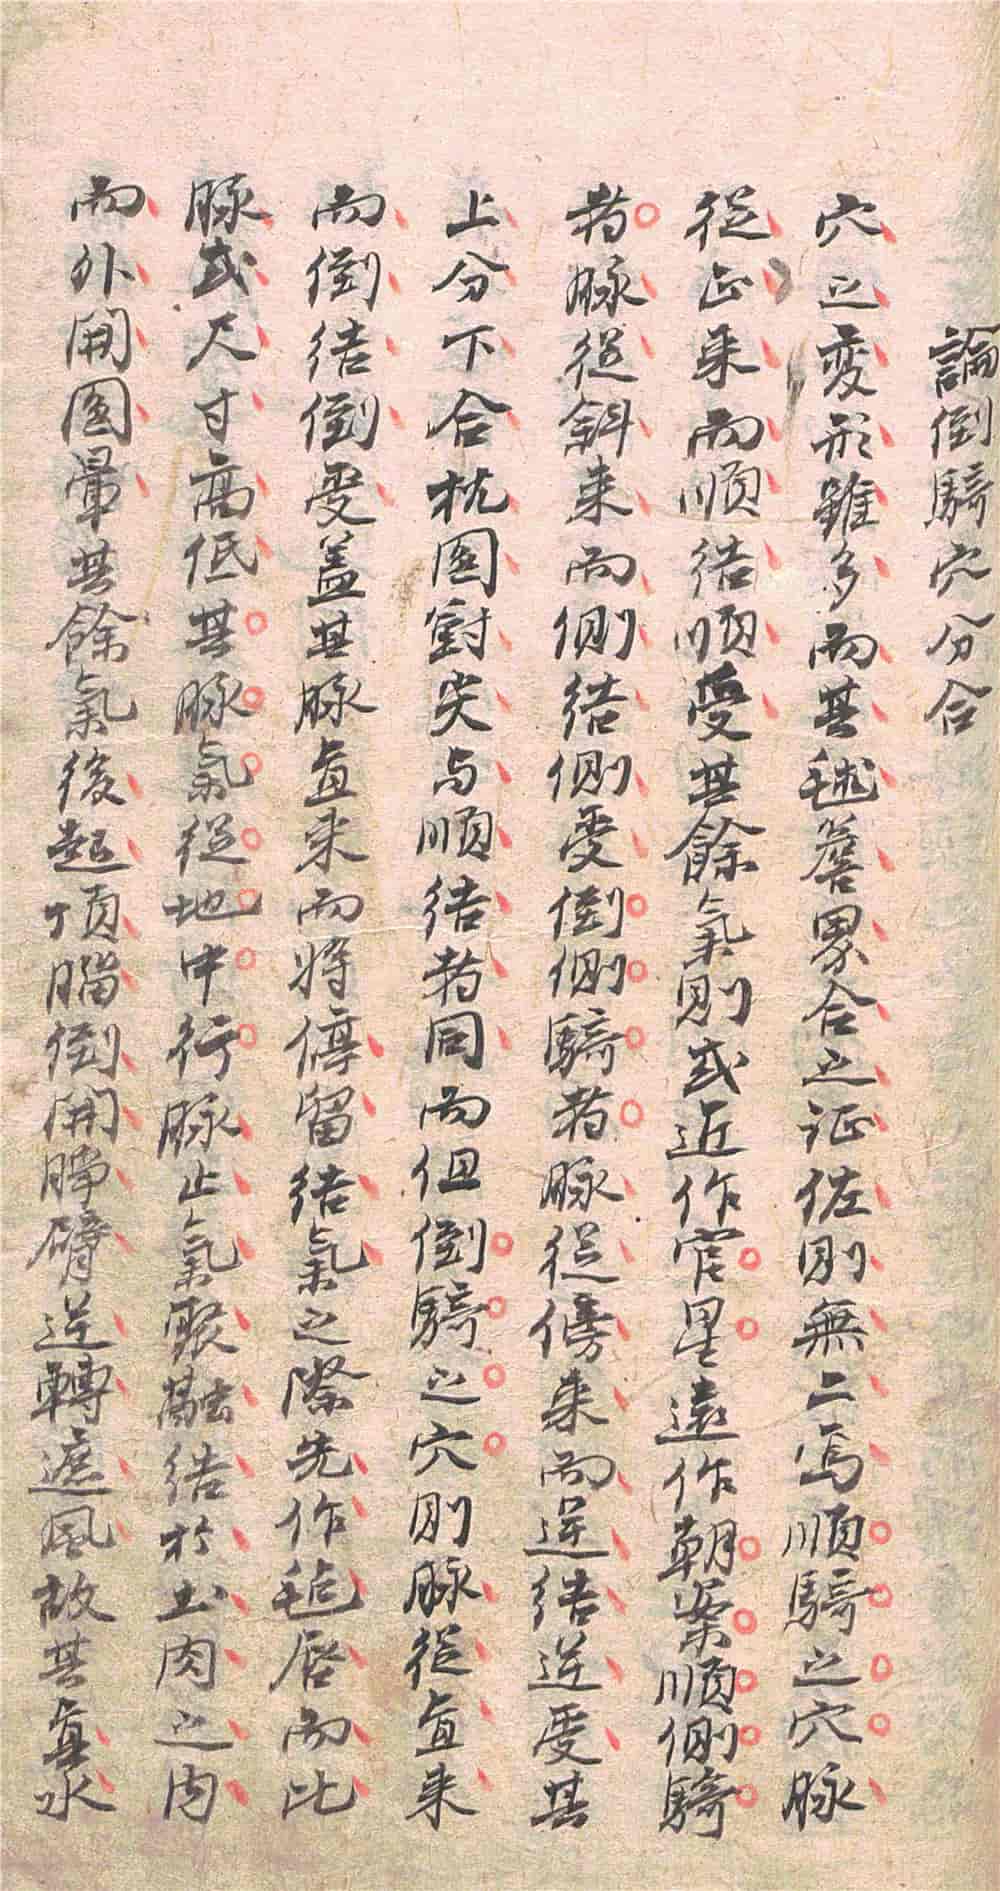 論倒騎穴分合
穴之变形雖多而其毬簷界合之证佐則無二焉順騎之穴脉
從正来而順结順受其餘氣則或近作官星遠作朝案順側騎
者脉從斜来而側结側受倒側騎者脉從傍来而逆结逆受其
上分下合枕圓對尖与順结者同而但倒騎之穴則脉從直来
而倒结倒受盖其脉直来而将停留结氣之際先作毡唇而比
脉或尺寸高低其脉氣從地中行脉止氣聚融结扵土肉之内
而外開圓暈其餘氣後起項腦倒開臂逆轉遮風故其真水